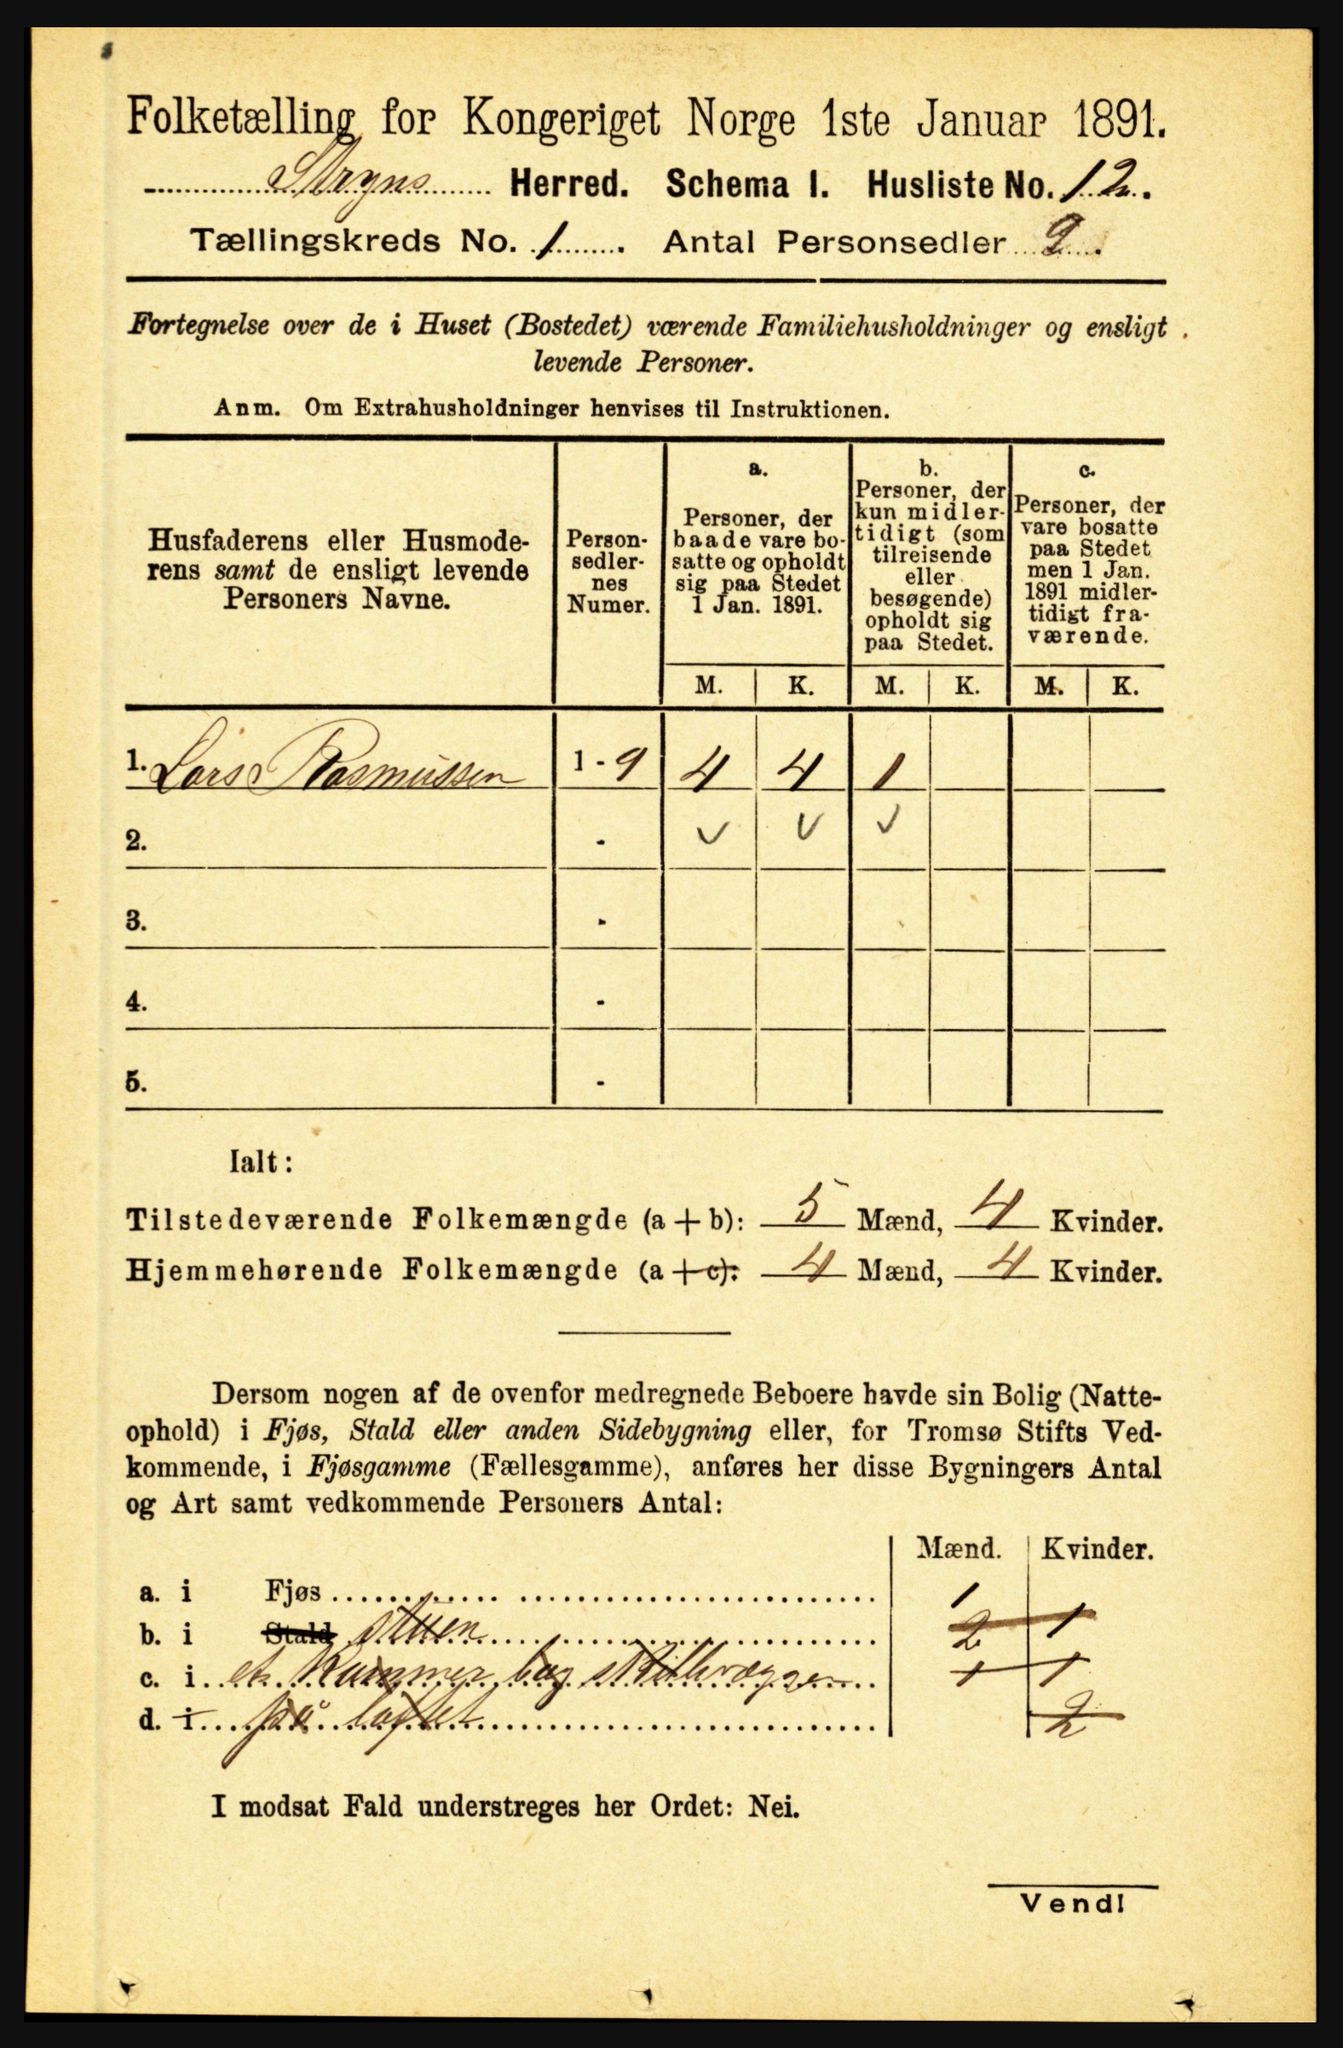 Folketælling for Kongeriget Norge 1ste Januar 1891.
Stryns Herred. Schema I. Husliste No. 12.
Tællingskreds No. 1. Antal Personsedler 9.
Fortegnelse over de i Huset (Bostedet) værende Familiehusholdninger og ensligt
levende Personer.
Anm. Om Extrahusholdninger henvises til Instruktionen.
Husfaderens eller Husmode-
rens samt de ensligt levende
Personers Navne.
Person-
sedler-
nes
Numer.
a.
Personer, der
baade vare bo-
satte og opholdt
sig paa Stedet
1 Jan. 1891.
b.
Personer, der
kun midler-
tidigt (som
tilreisende
eller
besøgende)
opholdt sig
paa Stedet.
c.
Personer, der
vare bosatte
paa Stedet
men 1 Jan.
1891 midler-
tidigt fra-
værende.
M. K. M. K. M. K.
1. Lars Rasmussen 1 - 9 4 4 1
2. - ✓ ✓ ✓
3. -
4. -
5. -
Ialt:
Tilstedeværende Folkemængde (a + b): 5 Mænd, 4 Kvinder.
Hjemmehørende Folkemængde (a + c): 4 Mænd, 4 Kvinder.
Dersom nogen af de ovenfor medregnede Beboere havde sin Bolig (Natte-
ophold) i Fjøs, Stald eller anden Sidebygning eller, for Tromsø Stifts Ved-
kommende, i Fjøsgamme (Fællesgamme), anføres her disse Bygningers Antal
og Art samt vedkommende Personers Antal:
Mænd. Kvinder.
a. i Fjøs 1
b. i Stald stuen 2 1
c. i et Kammer bag 1 1
d. i på loftet 2
I modsat Fald understreges her Ordet: Nei.
Vend!